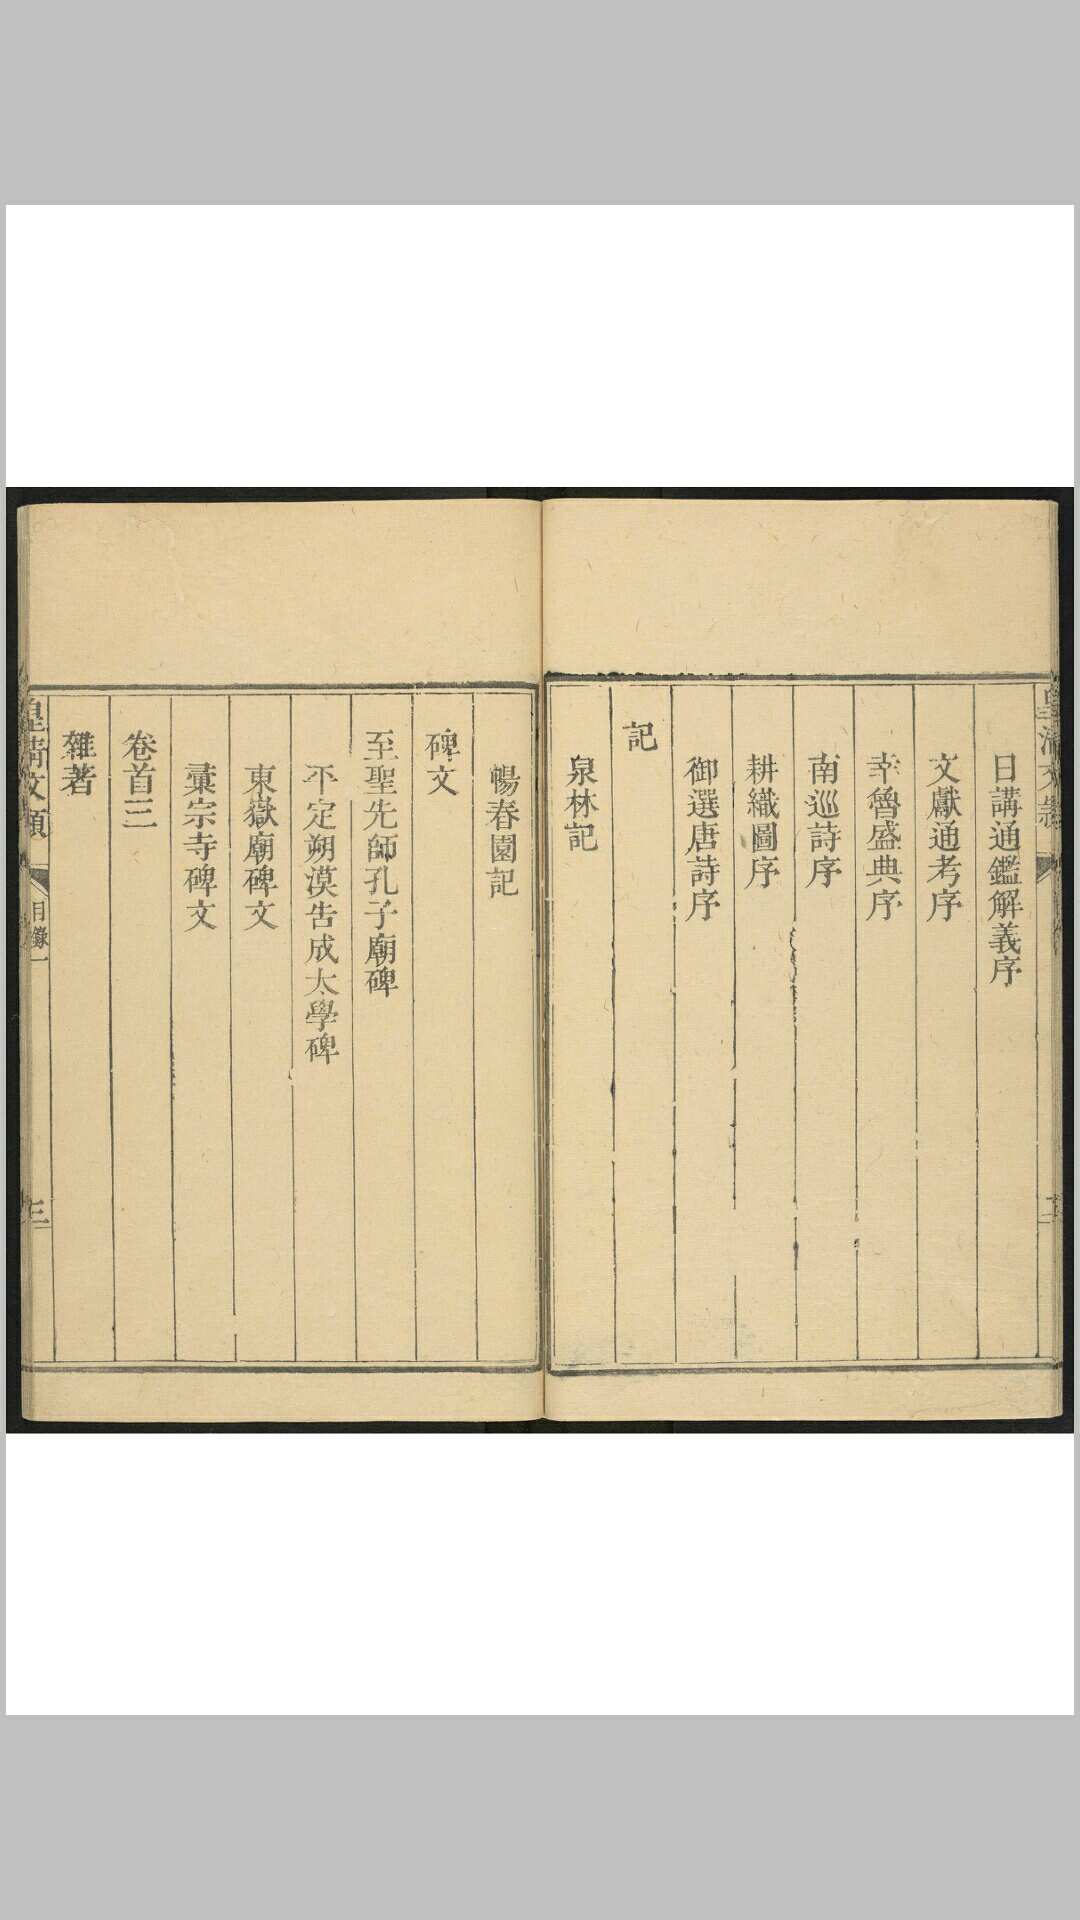 日講通鑑解義序
文獻通考序
幸魯盛典序
南巡詩序
耕織圖序
御選唐詩序
記
泉林記
暢春園記
碑文
至聖先師孔子廟碑
不定朔漠告成太學碑
東嶽廟碑文
彚宗寺碑文
卷首三
雜著
皇清文穎
目錄一
三